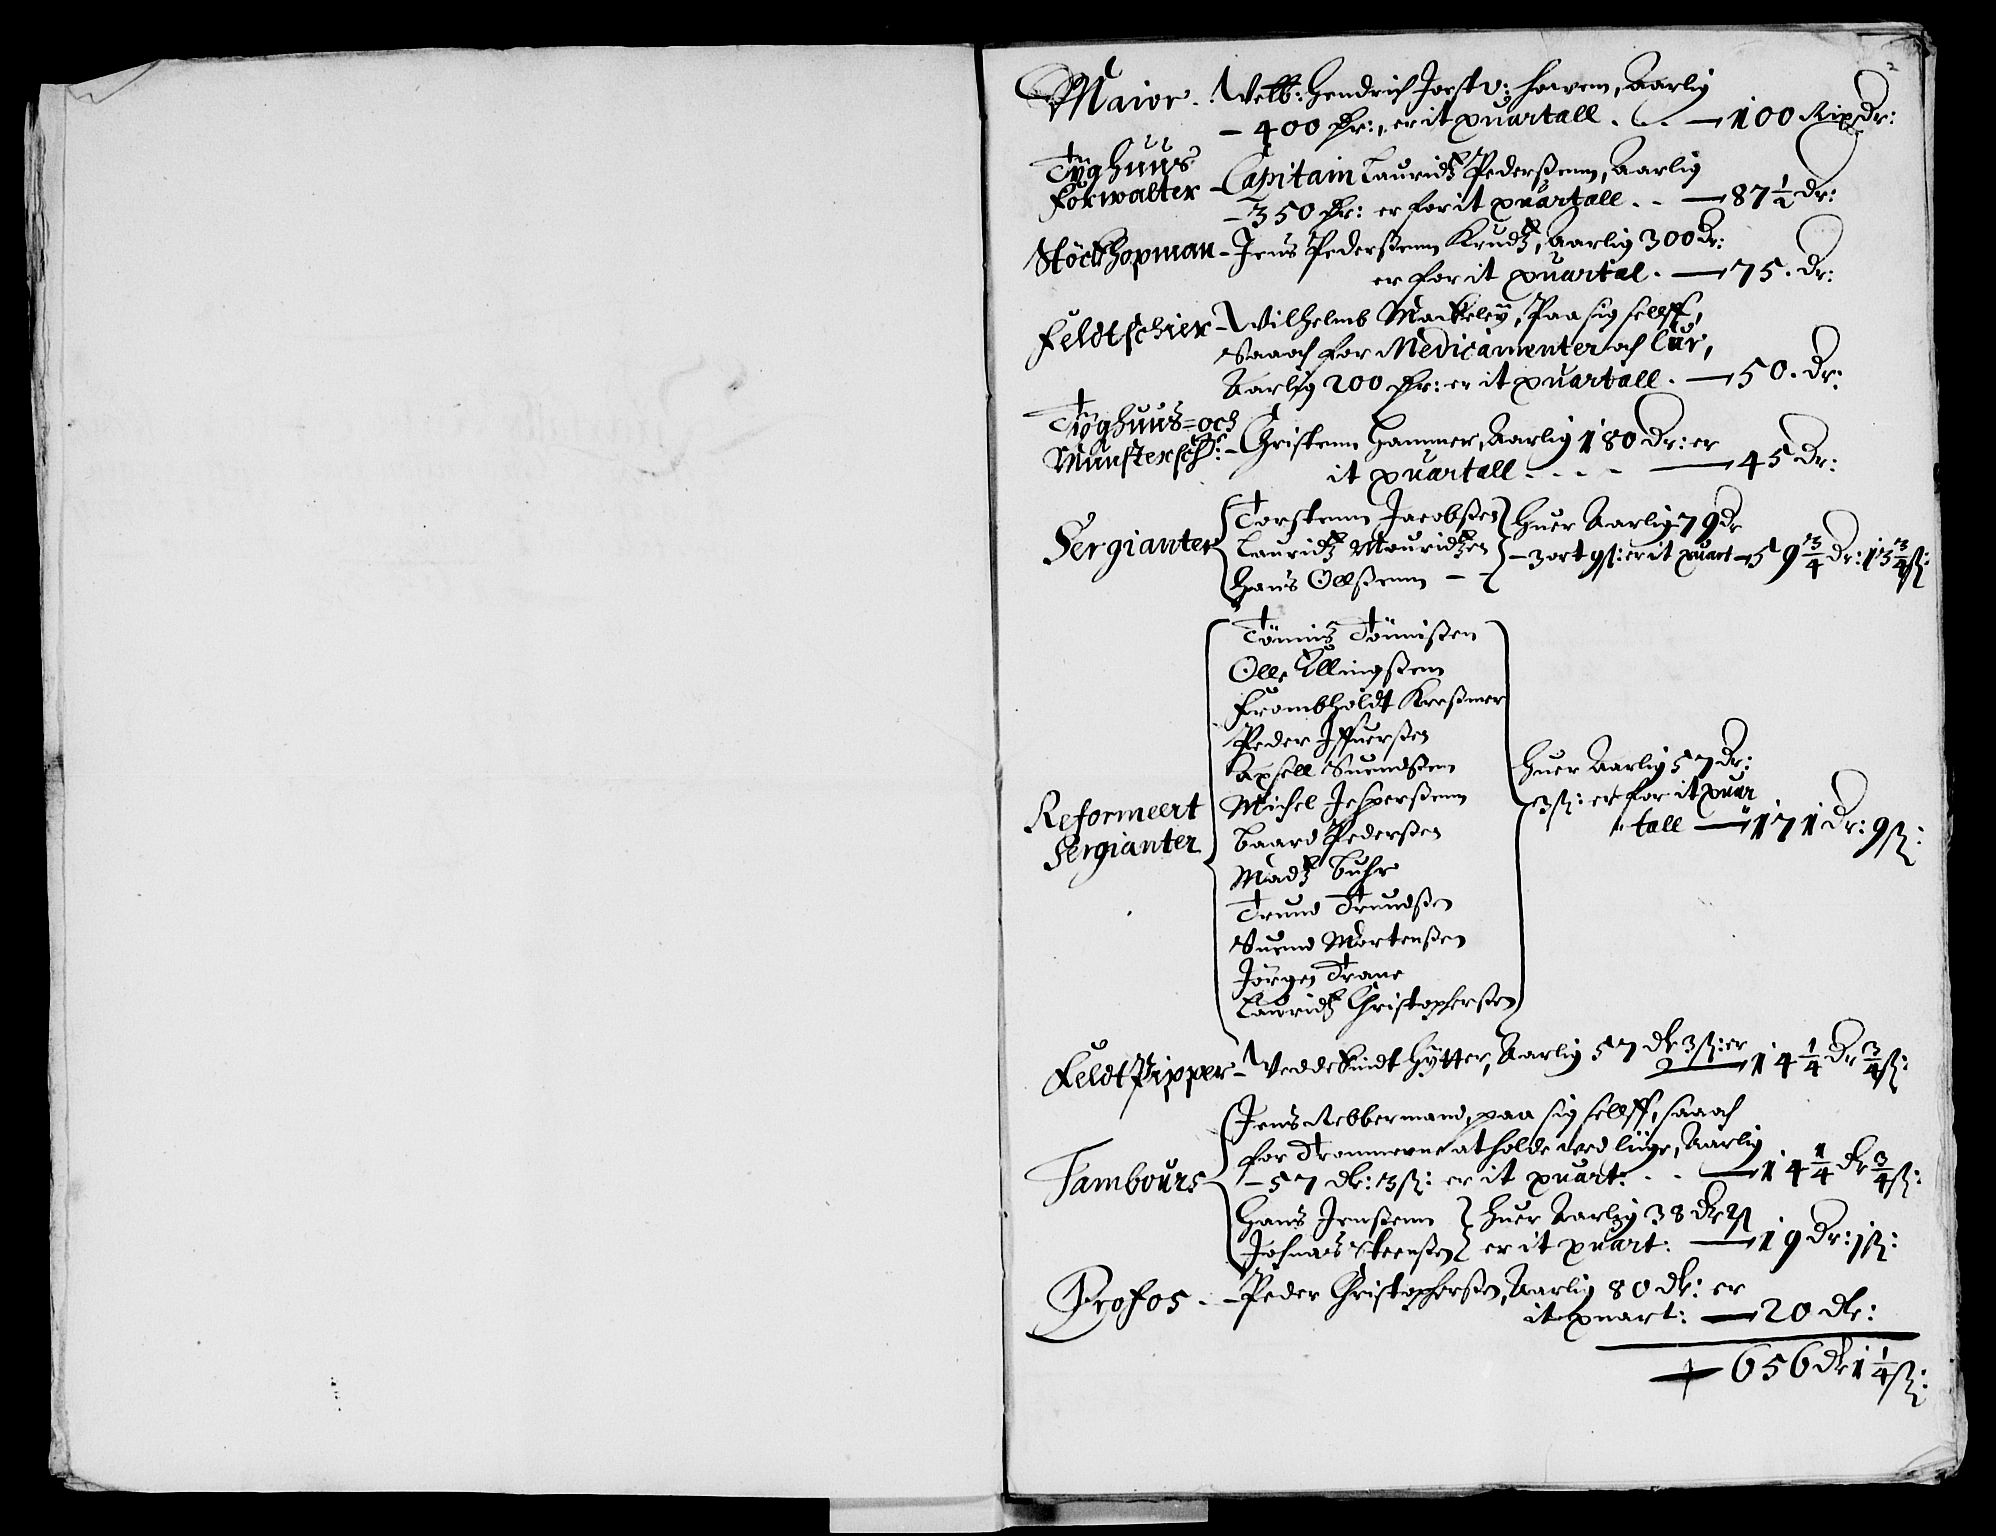 2
Maior - Velb: Hendrich Jorst v: hoevem, Aarlig
- 400 Dr:, er it quartall . . . — 100 Rixdr:
Tÿghuus
Forwalter - Capitain Lauridtz Pederßenn, Aarlig
- 350 Dr: er for it quartall . . — 87 1/2 Dr:
Stöckhopman - Jens Pederßenn Krudtz, Aarlig 300 Dr:
er for it quartal . — 75. Dr:
Feldtschier - Wilhelmb Mackeleÿ, Paa sig sellff,
Saaoch for Medicamenter och lůn,
Aarlig 200 Dr: er it quartall . — 50. Dr:
Tÿghuus= och
Munstersch: - Christenn Hammer, Aarlig 180 Dr: er
it quartall . . . . — 45 Dr:
Sergianter
Torstenn Jacobßen
Lauridtz Mouridtzen
Hans Ollßenn - -
Huer Aarlig 79 Dr
- 3 ort 9 ß: er it quart — 59 3/4 Dr: 13 3/4 ß:
Reformeert
Sergianter
Tönnis Tönnißen
Olle Ellingßenn
Frombholdt Kreßmer
Peder Iffuerßen
Axsell Suendßenn
Michel Jesperßenn
Baard Pederßen
Madtz Buhr
Trund Trundßen
Suend Mortenßen
Jörgen Trane
Lauridtz Christopherßen
Huer Aarlig 57 Dr:
3 ß: er for it quar
tall — 171 Dr: 9 ß:
Feldt Pipper - Weddekindt Hÿtter, Aarlig 57 dr 3 ß: er
— 14 1/4 Dr 3/4 ß:
Tambours
Jens Rebbermand, paa sig sellff, saaoch
for Trommerne at holde ved liige, Aarlig
- 57 dr: 3 ß: er it quart: . . — 14 1/4 dr 3/4 ß:
Hans Jenßenn
Johnas Steenßen
Huer Aarlig 38 dr 2 ß
er it quart: — 19 Dr: 1 ß:
Profos . - Peder Christopherßen, Aarlig 80 dr: er
it quart: — 20 dr:
— 656 dr 1 1/4 ß: